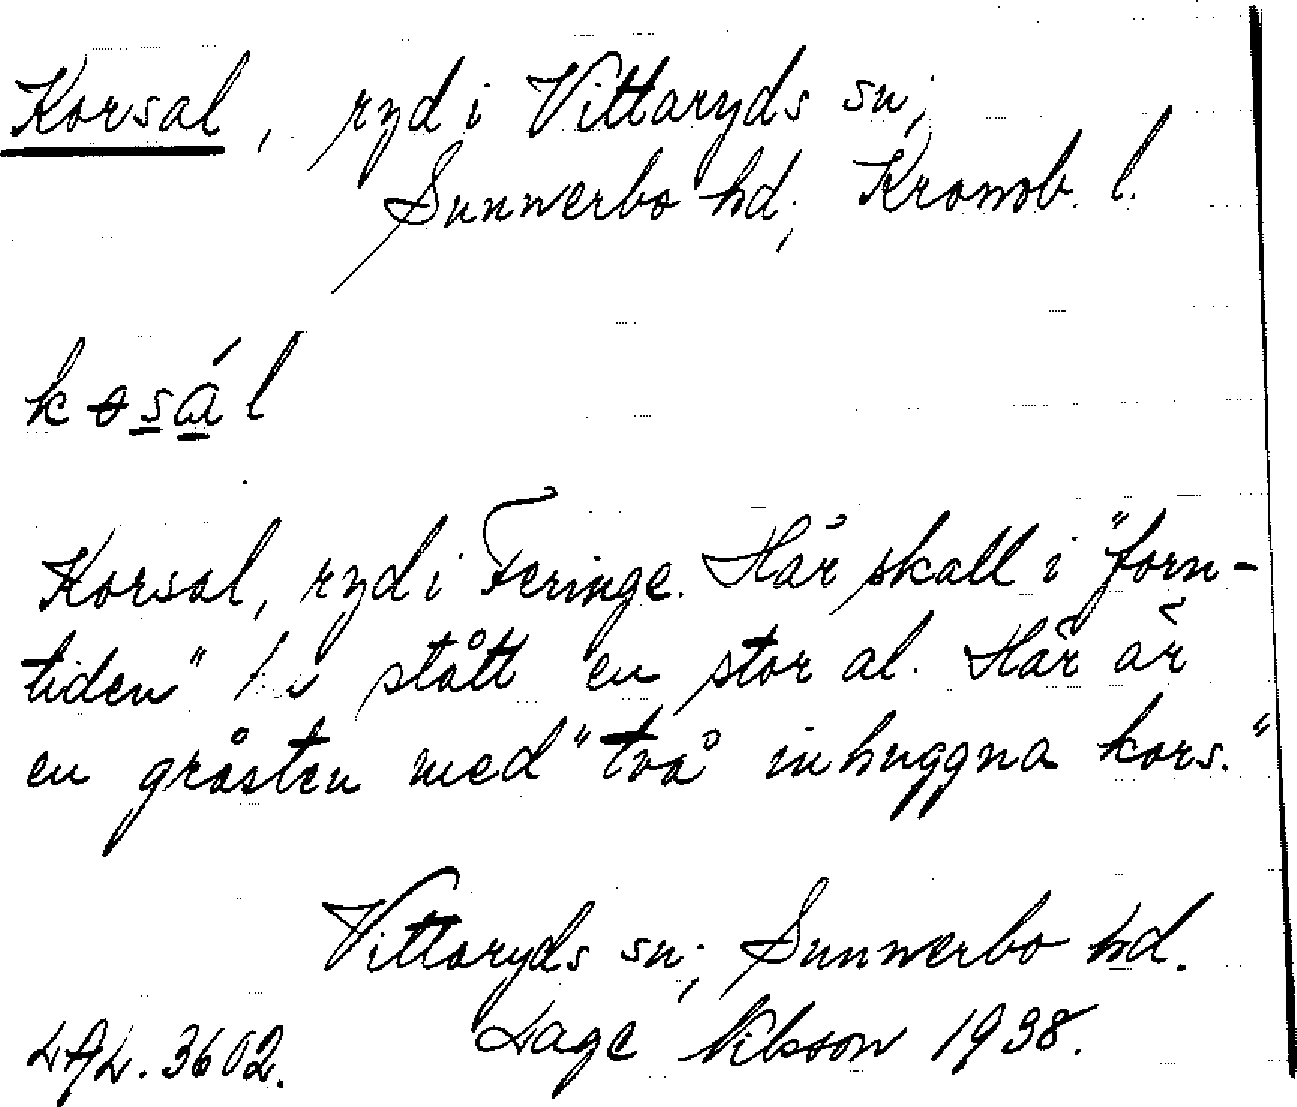 Korsal, ryd i Vittaryds sn;
Sunnerbo hd; Kronob. l.
kosál
Korsal, ryd i Feringe. Här skall i "forn-
tiden" ha stått en stor al. Här är
en gråsten med "två inhuggna kors."
Vittaryds sn; Sunnerbo hd.
LAL. 3602. Dage Nilsson 1938.